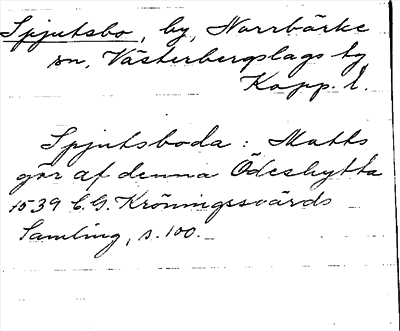 Spjutsbo, by, Norrbärke
sn, Västerbergslags tg
Kopp. l.
Spjutsboda: Matts
gör af denna Ödeshytta
1539 C. G. Kröningssvärds
Samling, s. 100.